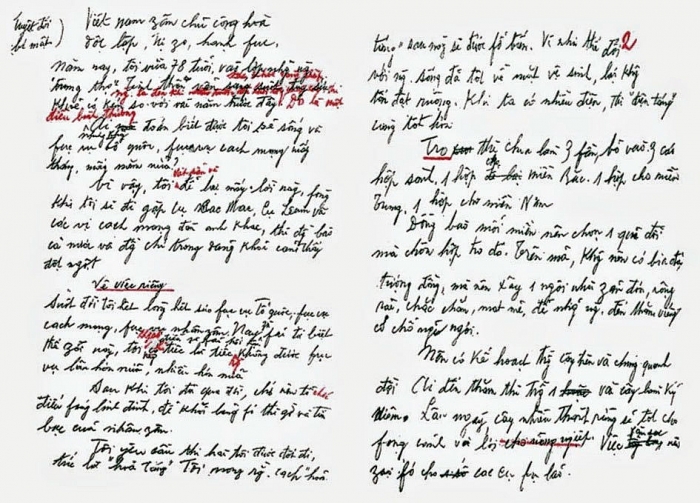 Tuyệt đối
bí mật)
Việt nam zân chủ cộng hoà
độc lập, tự zo, hạnh fúc.
Năm nay, tôi vừa 78 tuổi, vào lớp những người
"trung thọ"
khoẻ so với vài năm trước đây. Đó là một
điều bình thường
ai mà đoán biết được tôi sẽ sống và
fục vụ tổ quốc, fục vụ cách mạng mấy
tháng, mấy năm nữa?
Vì vậy, tôi để lại mấy lời này, fòng
khi tôi sẽ đi gặp cụ Các Mác, cụ Lênin và
các vị cách mạng đàn anh khác, thì đồng bào
cả nước và đồng chí trong đảng khỏi cảm thấy
đột ngột
Về việc riêng
Suốt đời tôi hết lòng hết sức fục vụ tổ quốc, fục vụ
cách mạng, fục vụ nhân zân. Nay zù fải từ biệt
thế zới này, tôi chỉ tiếc là tiếc không được fục
vụ lâu hơn nữa, nhiều hơn nữa
Sau khi tôi đã qua đời, chớ nên tổ chức
điếu fúng linh đình, để khỏi lãng fí thì zờ và tiền
bạc của nhân zân.
Tôi yêu cầu thi hài tôi được đốt đi,
tức là "hoả táng". Tôi mong rằng cách hoả
táng" sau này sẽ được fổ bến. Vì như thế đối 2
với người sống đã tốt về mặt vệ sinh, lại không
tốn đất ruộng. Khi ta có nhiều điện, thì "điện táng"
càng tốt hơn.
Tro thì chia làm 3 fần, bỏ vào 3 cái
hộp sành, 1 hộp cho miền Bắc. 1 hộp cho miền
Trung. 1 hộp cho miền Nam
Đồng bào mỗi miền nên chọn 1 quả đồi
mà chôn hộp tro đó. Trên mả, không nên có bia đá
tượng đồng, mà nên xây 1 ngôi nhà zản đơn, rộng
rãi, chắc chắn, mát mẻ, để những người đến thăm viếng
có chỗ nghỉ ngơi.
Nên có kế hoạch trồng cây trên và chung quanh
đồi. Ai đến thăm thì trồng 1 vài cây làm kỷ
niệm. Lâu ngày, cây nhiều thành rừng sẽ tốt cho
fong cảnh và lợi cho nông nghiệp. Việc săn sóc nên
zao fó cho các cụ fụ lão.